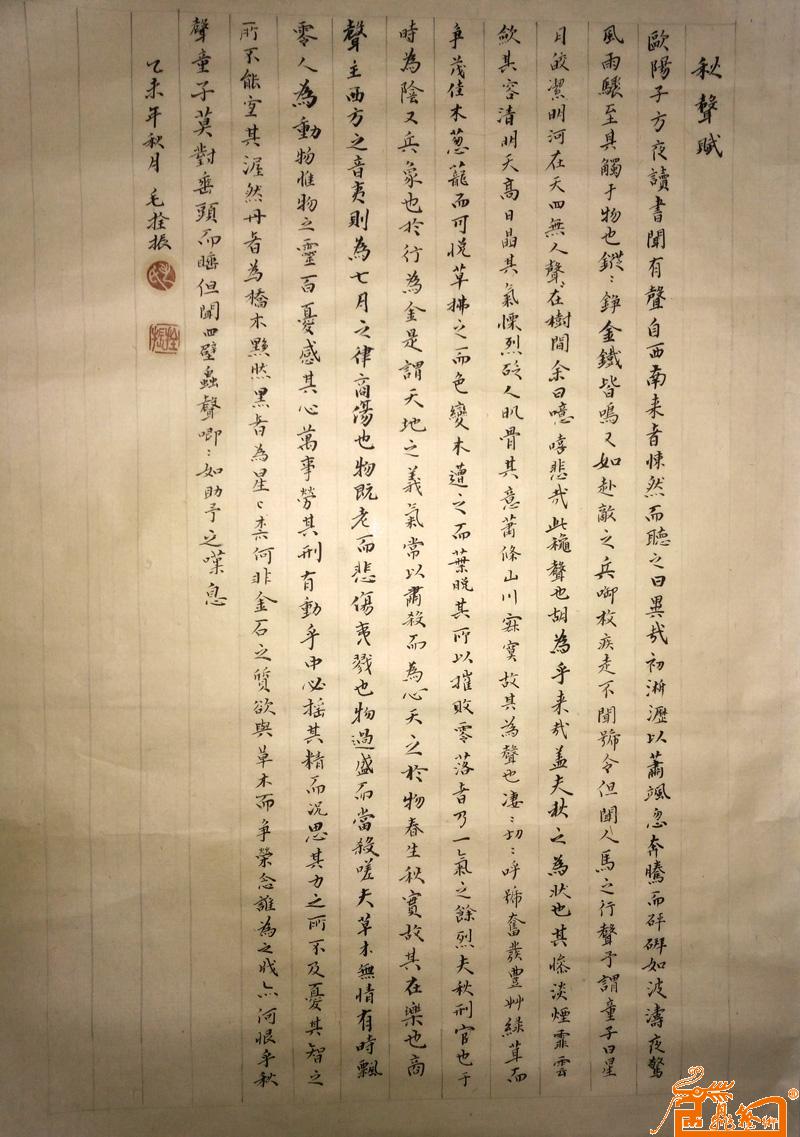 秋聲賦
歐陽子方夜讀書聞有聲自西南来者悚然而聽之曰異哉初淅瀝以蕭颯忽奔騰而砰湃如波濤夜驚
風雨驟至其觸于物也鏦〻錚金鐵皆鳴又如赴敵之兵啣枚疾走不聞號令但聞人馬之行聲予謂童子曰星
月皎潔明河在天四無人聲在樹間余曰噫嘻悲哉此秋聲也胡為乎来哉盖夫秋之為狀也其慘淡煙霏雲
斂其容清明天高日晶其氣慄烈砭人肌骨其意蕭條山川寂寞故其為聲也凄〻切〻呼號奮發豐艸綠茸而
争茂佳木葱蘢而可悦草拂之而色變木遭之而葉脱其所以摧敗零落者乃一氣之餘烈夫秋刑官也于
時為陰又兵象也於行為金是謂天地之義氣常以肅殺而為心天之於物春生秋實故其在樂也商
聲主西方之音夷則為七月之律商傷也物既老而悲傷夷戮也物過盛而當殺嗟夫草木無情有時飄
零人為動物惟物之靈百憂感其心萬事勞其刑有動乎中必摇其精而况思其力之所不及憂其智之
所不能宜其渥然丹者為槁木黟然黑者為星〻柰何非金石之質欲與草木而争榮念誰為之戕亦何恨乎秋
聲童子莫對垂頭而睡但聞四壁蟲聲唧〻如助予之嘆息
乙未年秋月 毛拴振